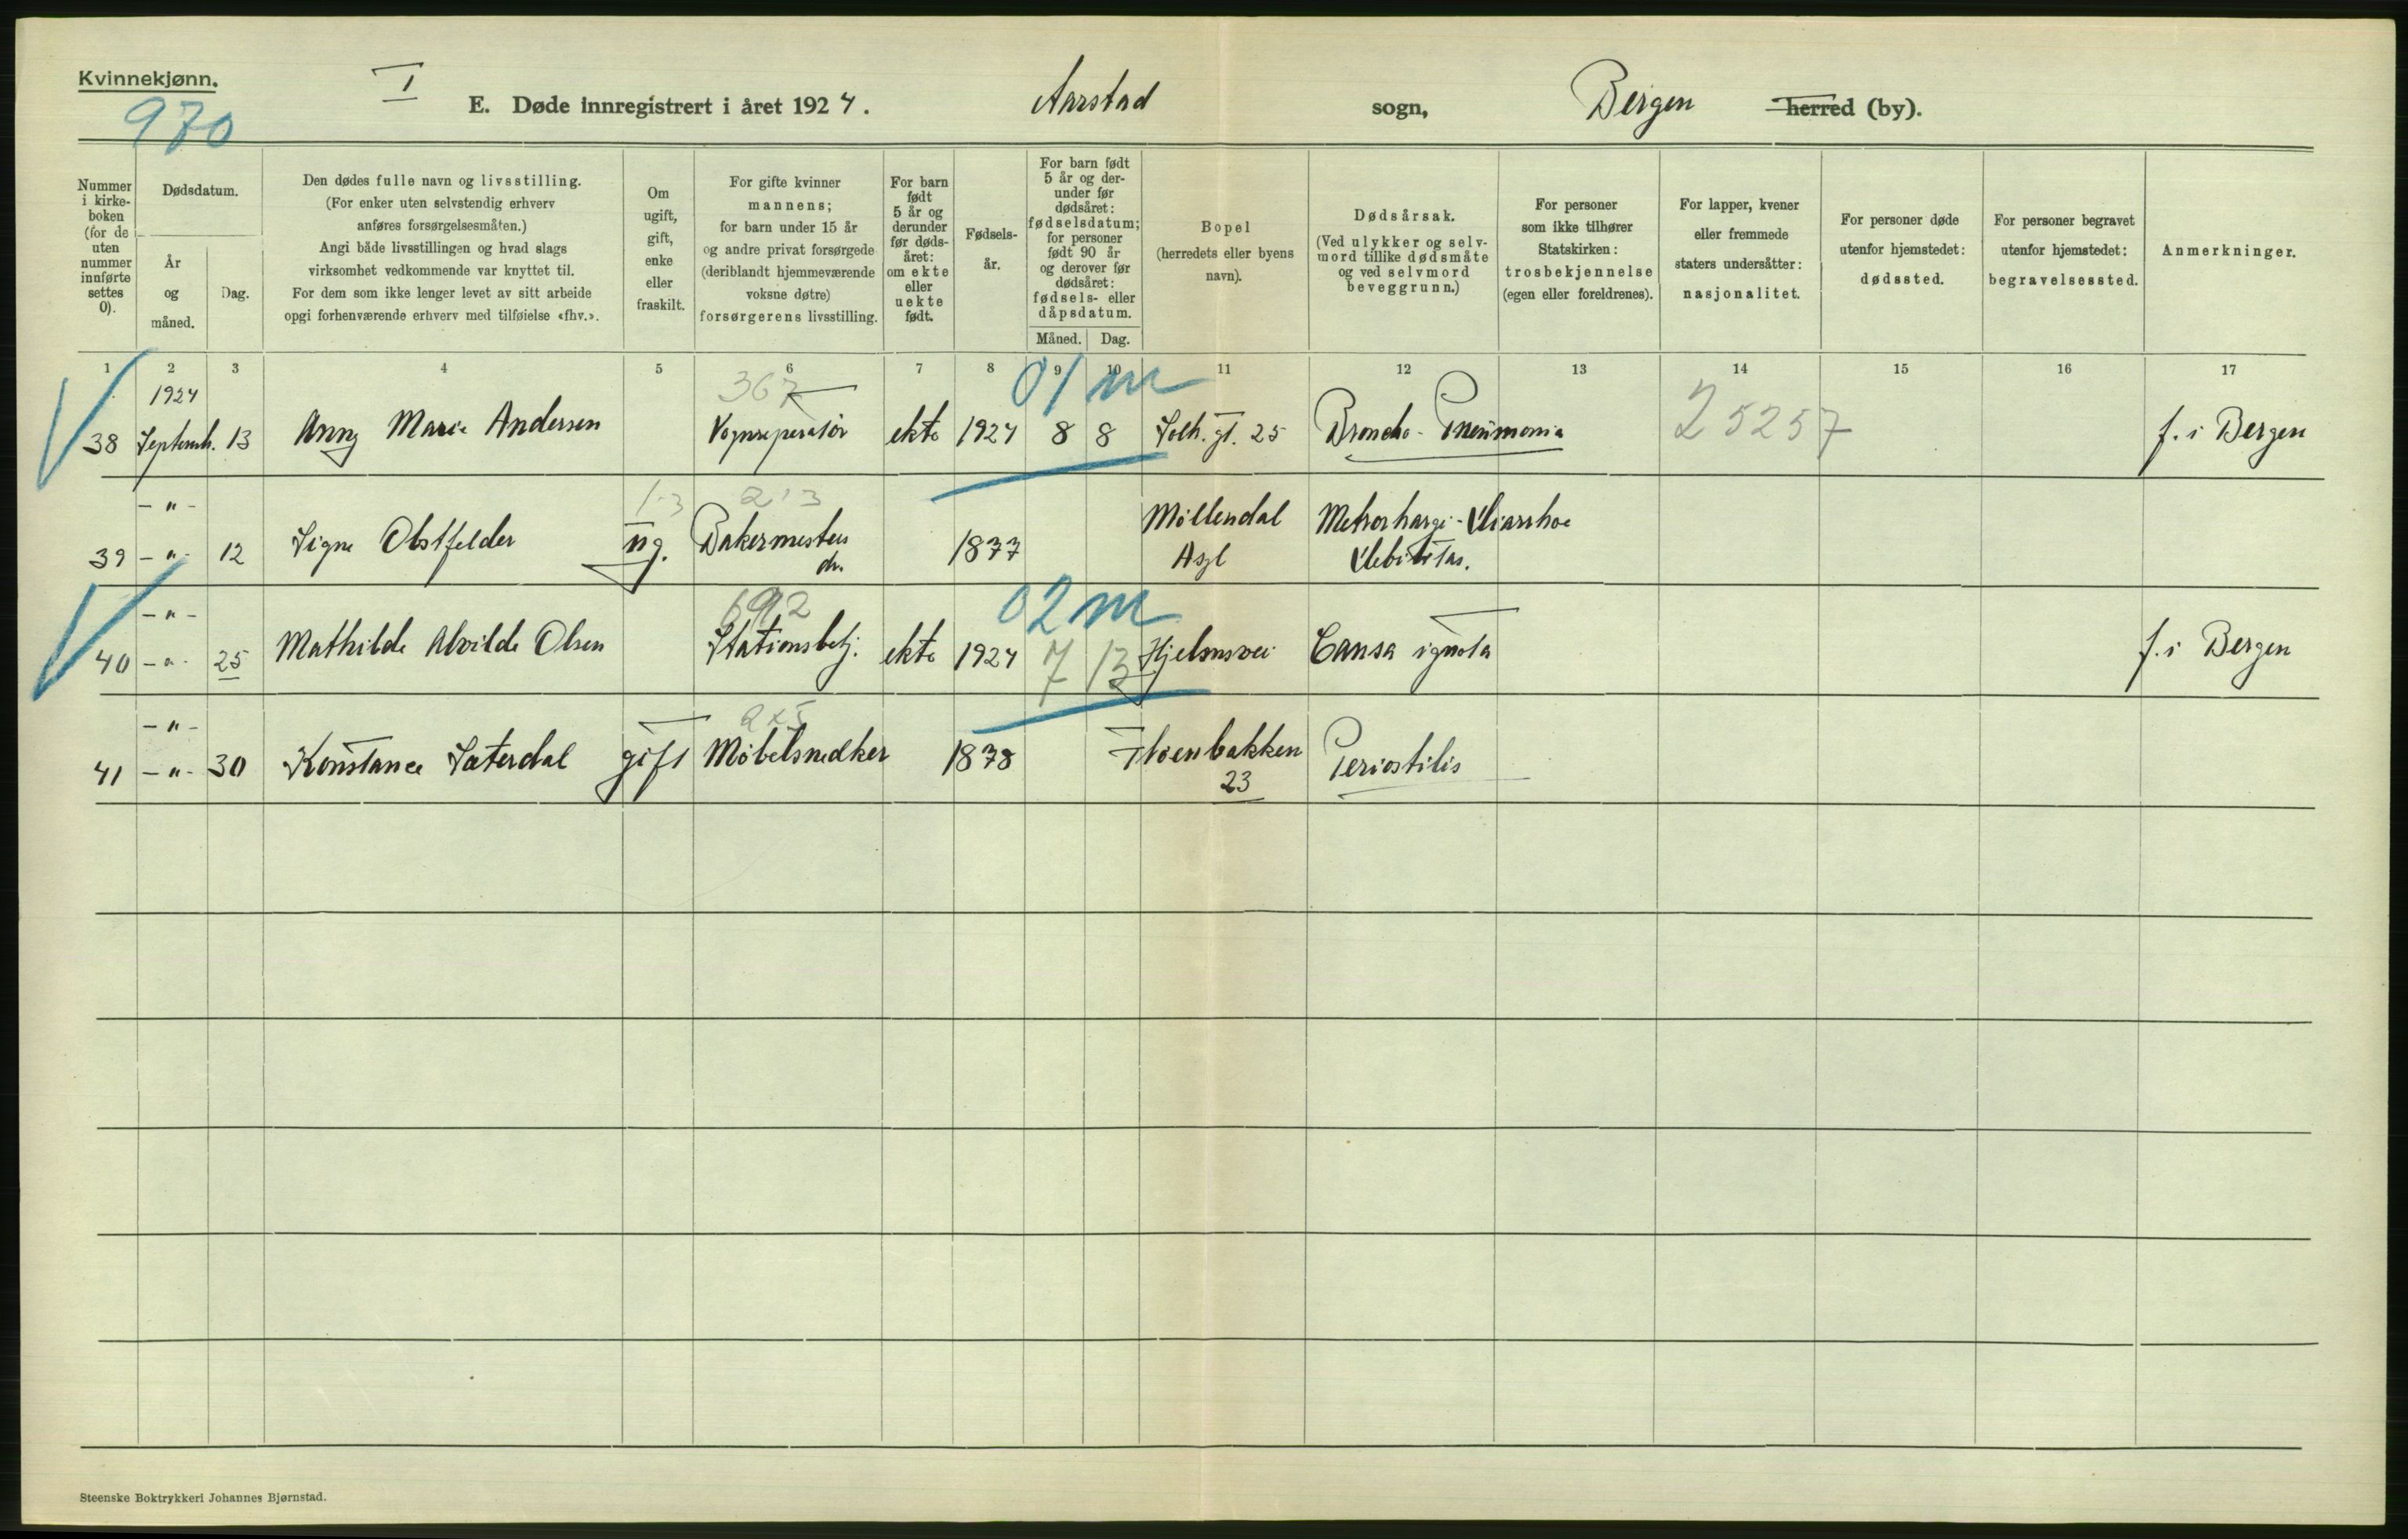 Kvinnekjønn.
970
I
E. Døde innregistrert i året 1924.
Aarstad sogn,
Bergen herred (by).
Nummer i kirkeboken (for de uten nummer innførte settes 0).
Dødsdatum.
År og måned.
Dag.
Den dødes fulle navn og livsstilling.
(For enker uten selvstendig erhverv
anføres forsørgelsesmåten.)
Angi både livsstillingen og hvad slags
virksomhet vedkommende var knyttet til.
For dem som ikke lenger levet av sitt arbeide
opgi forhenværende erhverv med tilføielse «fhv.».
Om
ugift,
gift,
enke
eller
fraskilt.
For gifte kvinner
mannens;
for barn under 15 år
og andre privat forsørgede
(deriblandt hjemmeværende
voksne døtre)
forsørgerens livsstilling.
For barn
født
5 år og
derunder
før døds-
året:
om ekte
eller
uekte
født.
Fødsels-
år.
For barn født
5 år og der-
under før
dødsåret:
fødselsdatum;
for personer
født 90 år
og derover før
dødsåret:
fødsels- eller
dåpsdatum.
Måned. Dag.
Bopel
(herredets eller byens
navn).
Dødsårsak.
(Ved ulykker og selv-
mord tillike dødsmåte
og ved selvmord
beveggrunn.)
For personer
som ikke tilhører
Statskirken:
trosbekjennelse
(egen eller foreldrenes).
For lapper, kvener
eller fremmede
staters undersåtter:
nasjonalitet.
For personer døde
utenfor hjemstedet:
dødssted.
For personer begravet
utenfor hjemstedet:
begravelsessted.
Anmerkninger.
1 2 3 4 5 6 7 8 9 10 11 12 13 14 15 16 17
1924 367 01 m
38 Septemb. 13 Anny Marie Andersen Vognreperatør ekte 1924 8 8 Solh. gt. 25 Broncho-Pneumonia 25257 f. i Bergen
- " - 213
39 - " - 12 Signe Obstfelder ug. Bakermesters dr. 1877 Møllendal Asyl Metrorhargi-Diarrhoe Debilitas.
- " - 692 02 m
40 - " - 25 Mathilde Alvilde Olsen Stationsbetj. ekte 1924 7 13 Hjelmsvei Causa ignota f. i Bergen
- " - 2x5
41 - " - 30 Konstance Sæterdal gift Møbelsnedker 1878 Fløenbakken 23 Periostitis
Steenske Boktrykkeri Johannes Bjørnstad.